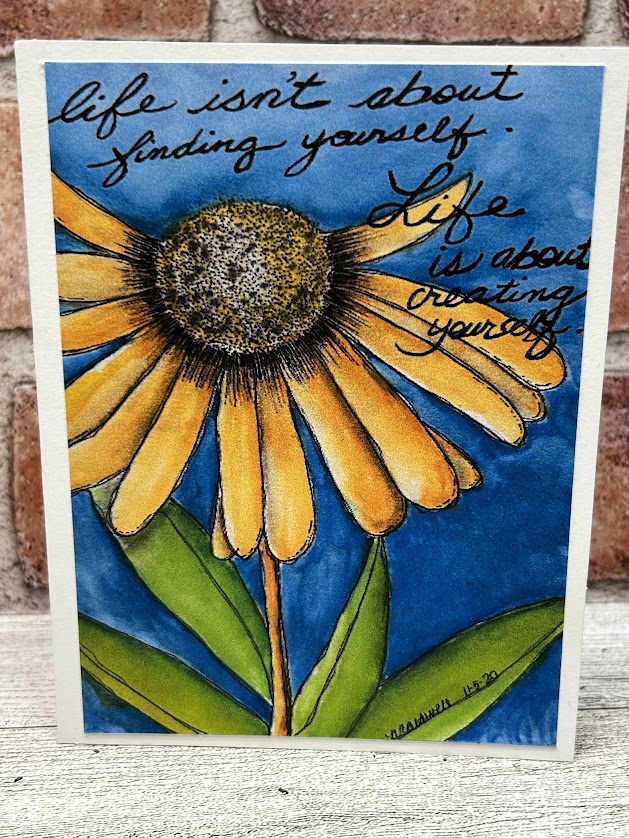 life isn't about
finding yourself.
Life
is about
creating
yourself.
11-5-20